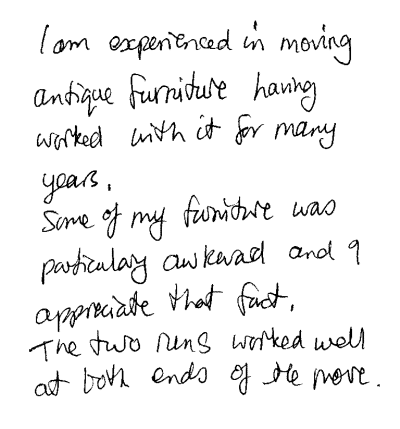 I am experienced in moving
antique furniture having
worked with it for many
years.
Some of my furniture was
particulary awkwad and I
appreciate that fact.
The two runs worked well
at both ends of the move.